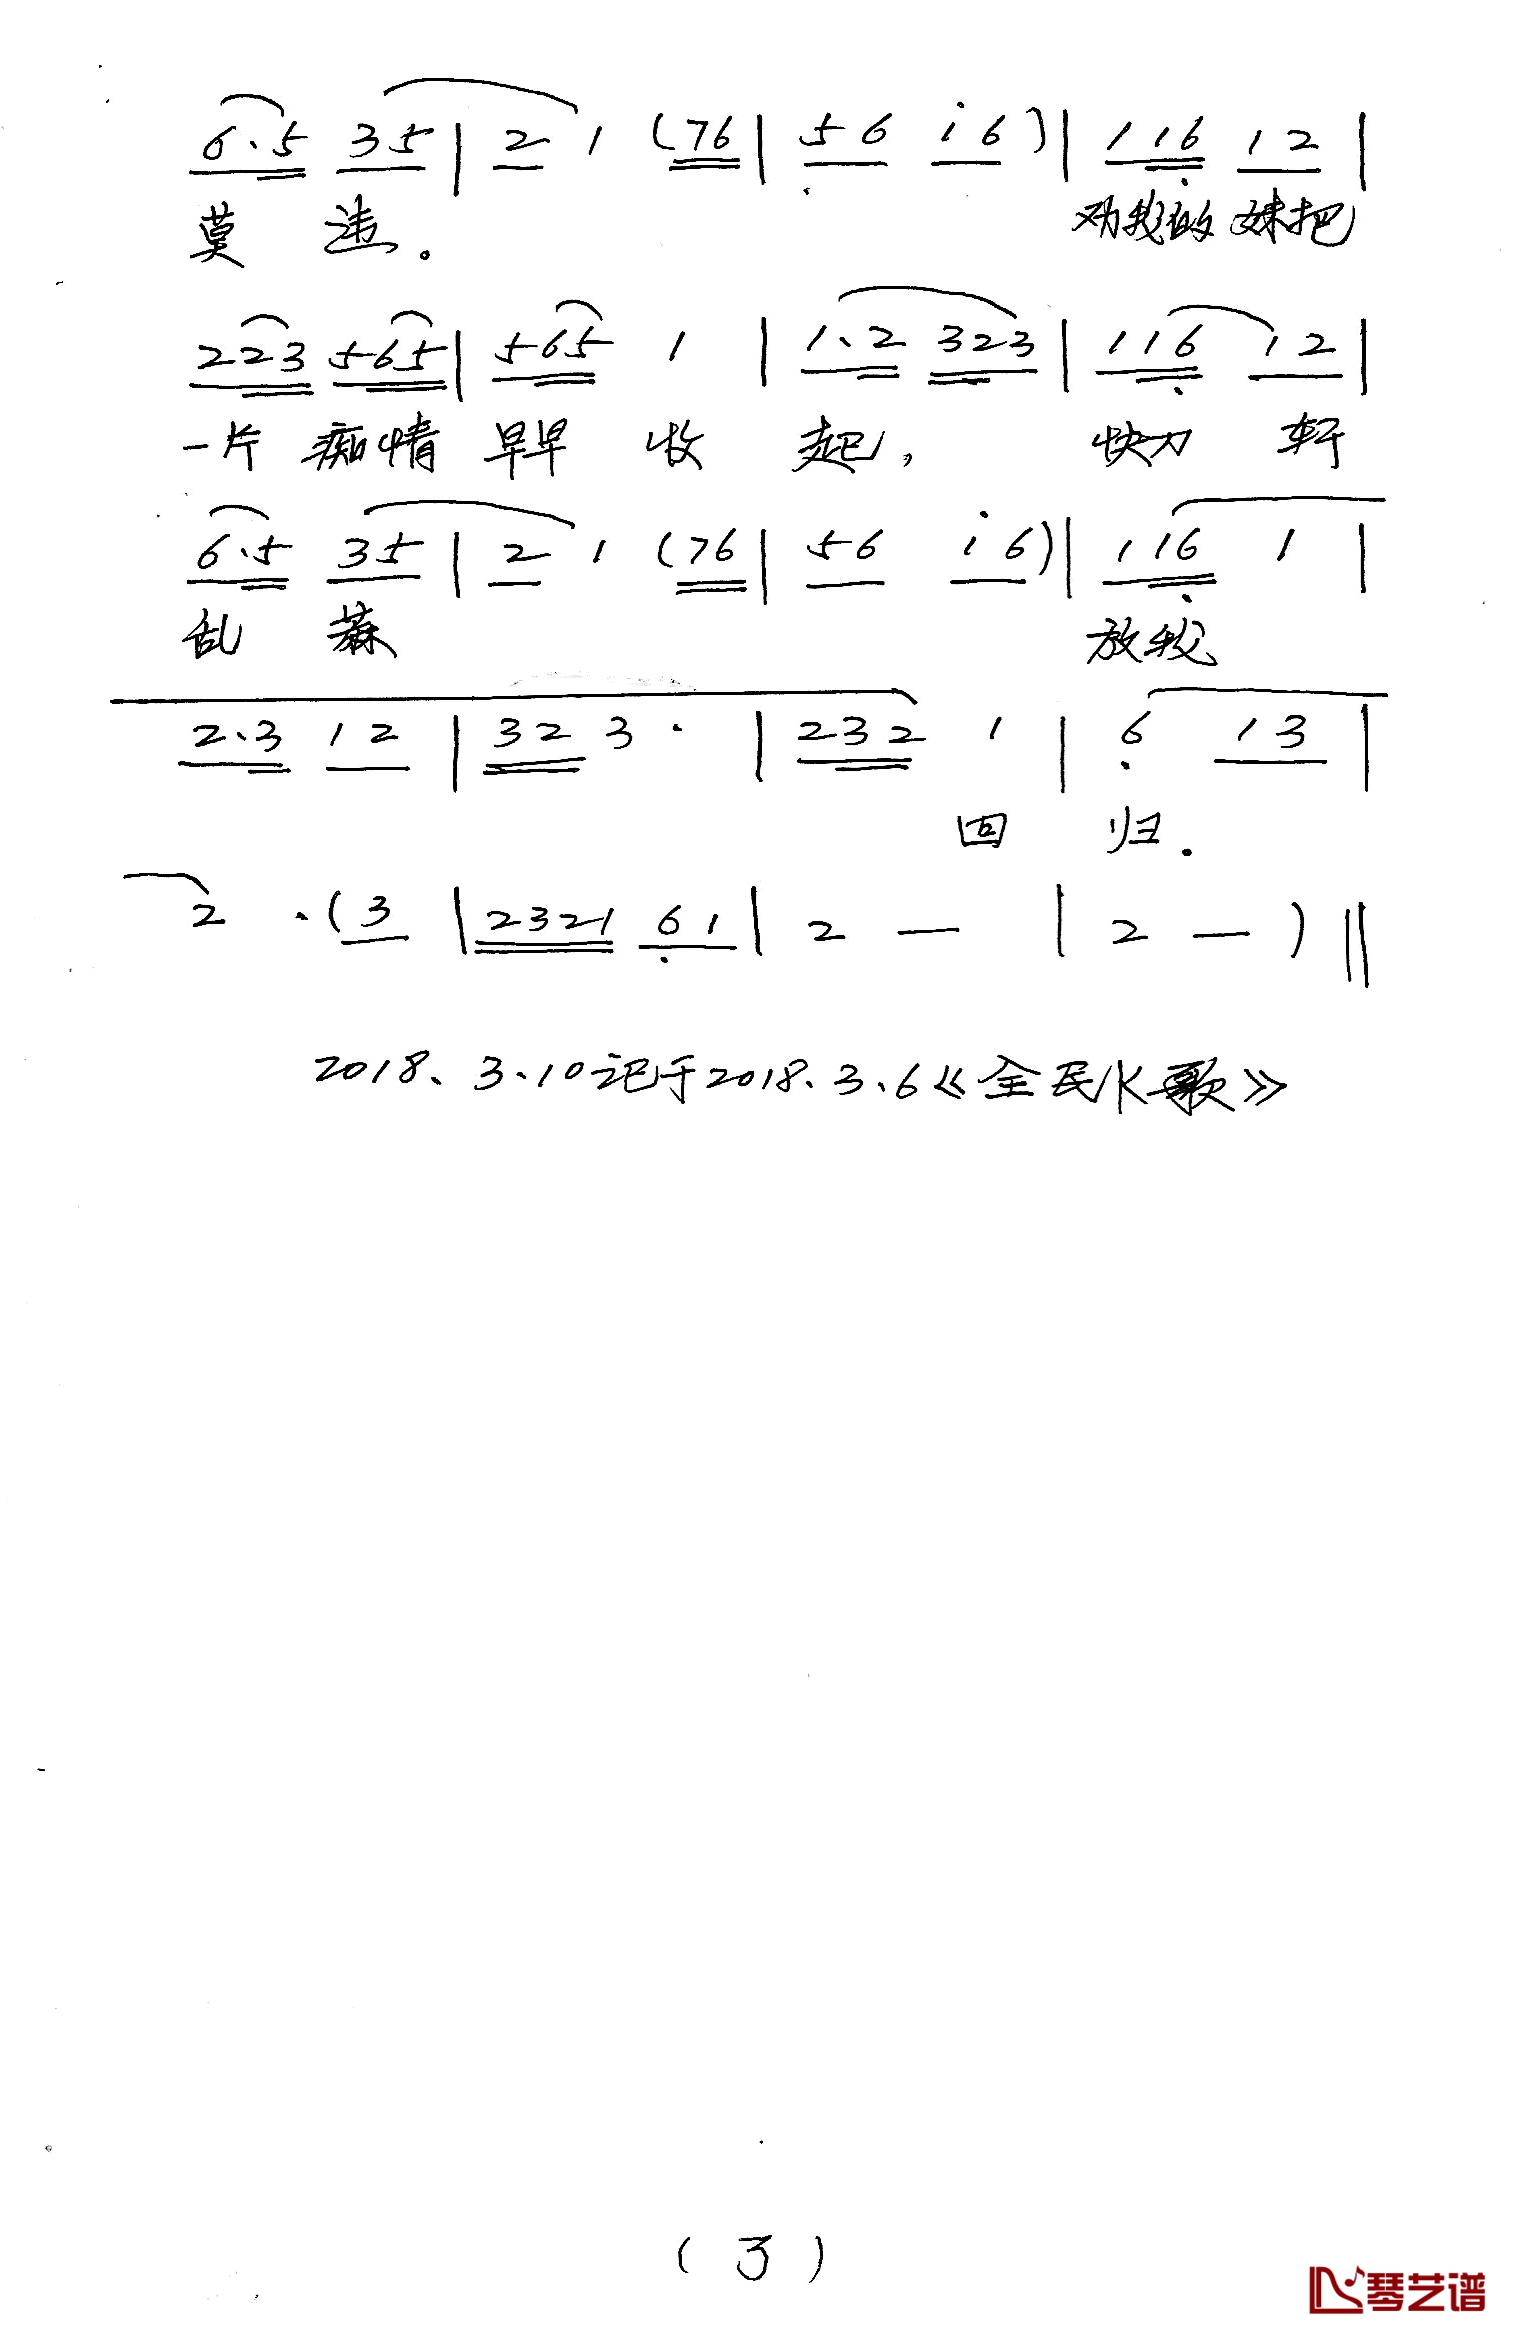 6·5 35 | 2 1 (76 | 56 i6) | 116 12 |
莫 违。 劝我的 妹把
223 565 | 565 1 | 1·2 323 | 116 12 |
一片 痴情 早早 收 起, 快刀 斩
6·5 35 | 2 1 (76 | 56 i6) | 116 1 |
乱 麻 放我
2·3 12 | 32 3· | 232 1 | 6 13 |
回 归.
2 ·(3 | 2321 61 | 2 — | 2 —) ‖
2018、3·10记于2018.3、6《全民K歌》
(3)
琴艺谱